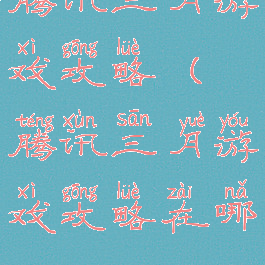 腾讯三月游
xì gōng lüè
戏攻略（
téng xùn sān yuè yóu
腾讯三月游
xì gōng lüè zài nǎ
戏攻略在哪